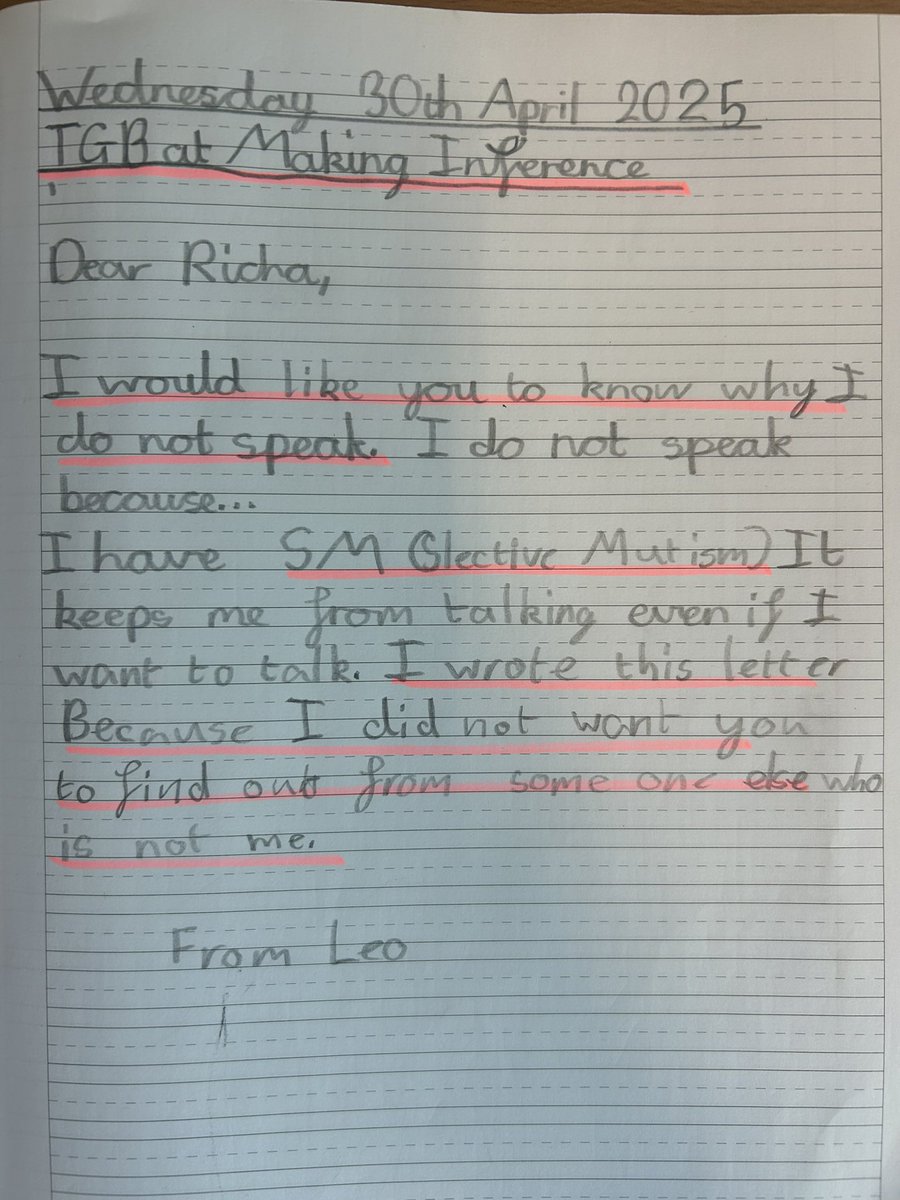 Wednesday 30th April 2025
IGB at Making Inference
Dear Richa,
I would like you to know why I
do not speak. I do not speak
because...
I have SM (Slective Mutism) It
keeps me from talking even if I
want to talk. I wrote this letter
Because I did not want you
to find out from some one else who
is not me.
From Leo